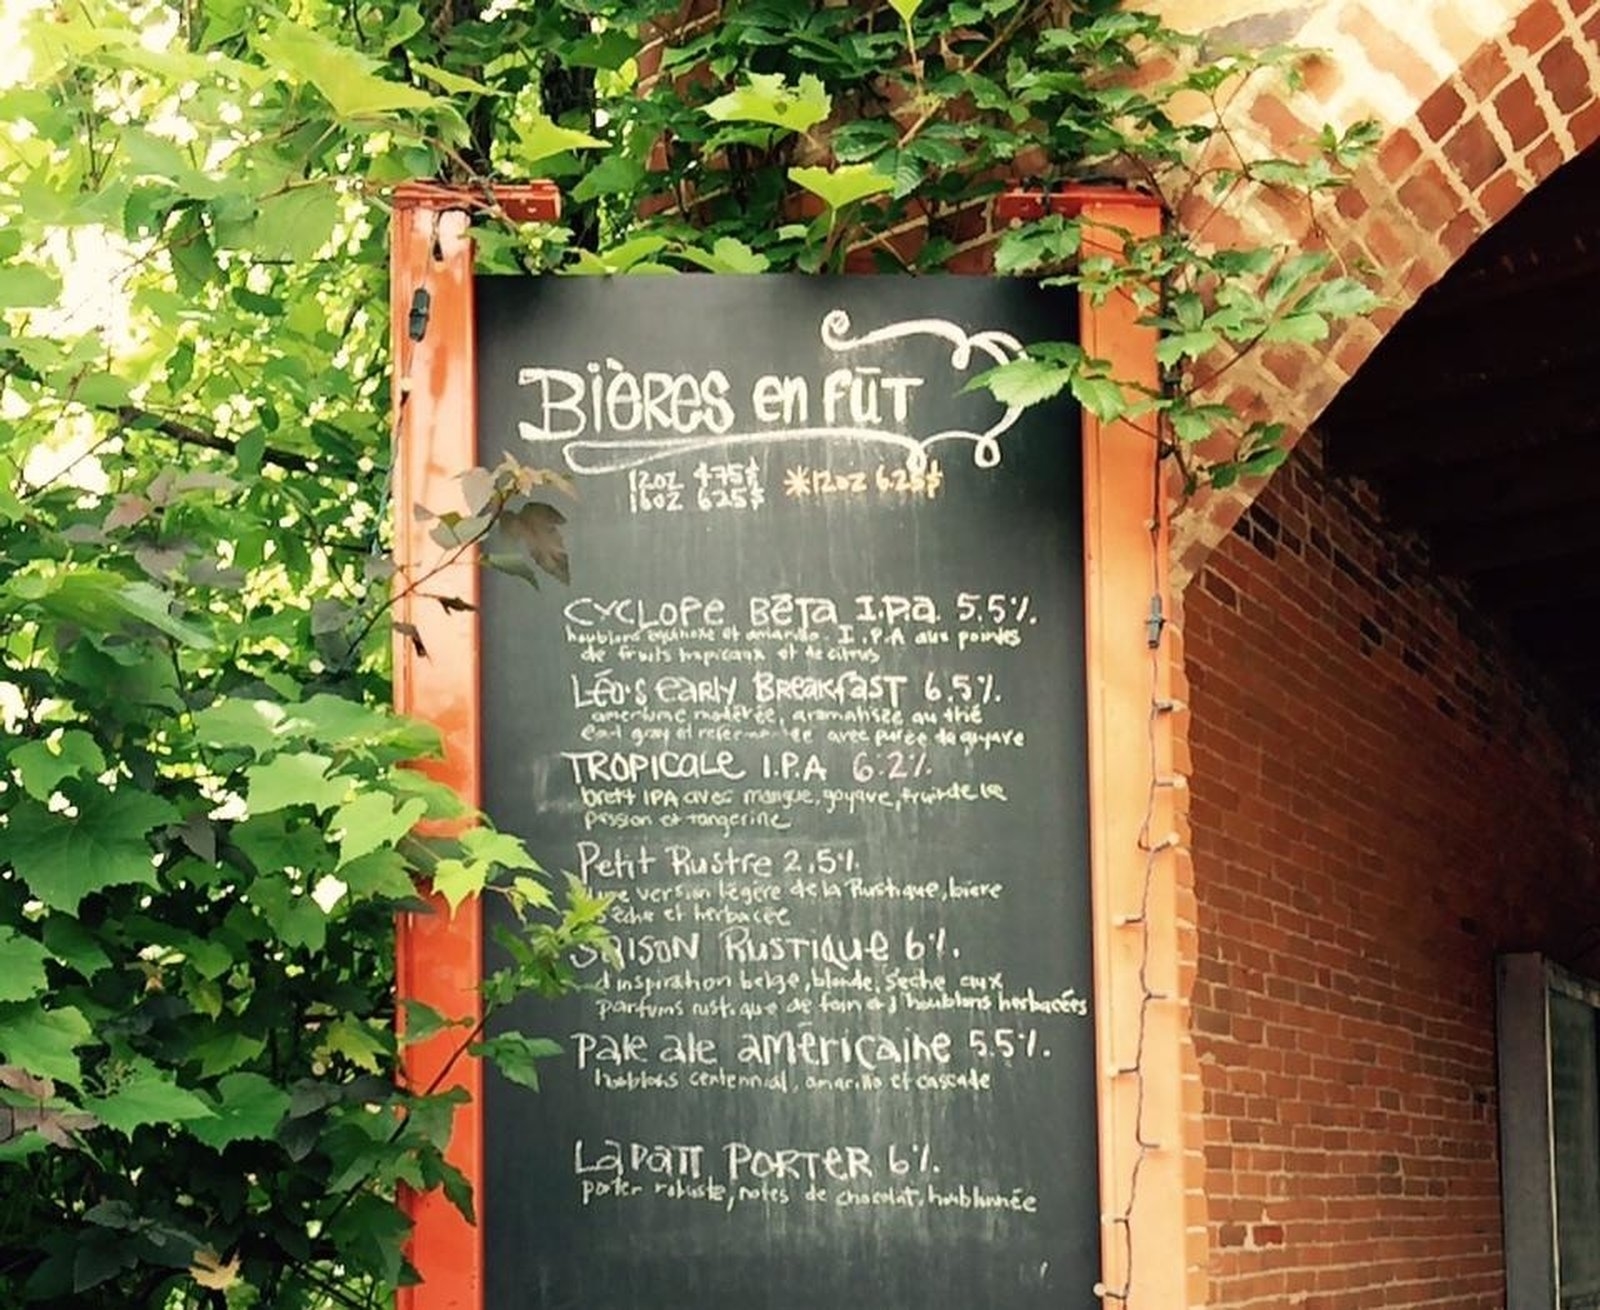 BIÈRES en fūT
12oz 4.75$ *12oz 6.25$
16oz 6.25$
CYCLOPE BēTa I.P.a. 5.5%.
houblons equinoxe et amarillo. I.P.A aux pointes
de fruits tropicaux et de citrus
LÉO'S eaRLY BReakfaST 6.5%.
amertume modérée, aromatisée au thé
earl gray et refermentée avec purée de goyave
TROPICaLe I.P.A 6.2%.
brett IPA avec mangue, goyave, fruit de la
passion et tangerine
Petit Rustre 2.5%.
Une version légère de la Rustique, bière
sèche et herbacée
SaISON RUSTIQUE 6%.
d'inspiration belge, blonde, sèche aux
parfums rustique de foin et houblons herbacées
pale ale américaine 5.5%.
houblons centennial, amarillo et cascade
La patt PORTER 6%.
porter robuste, notes de chocolat, houblonnée